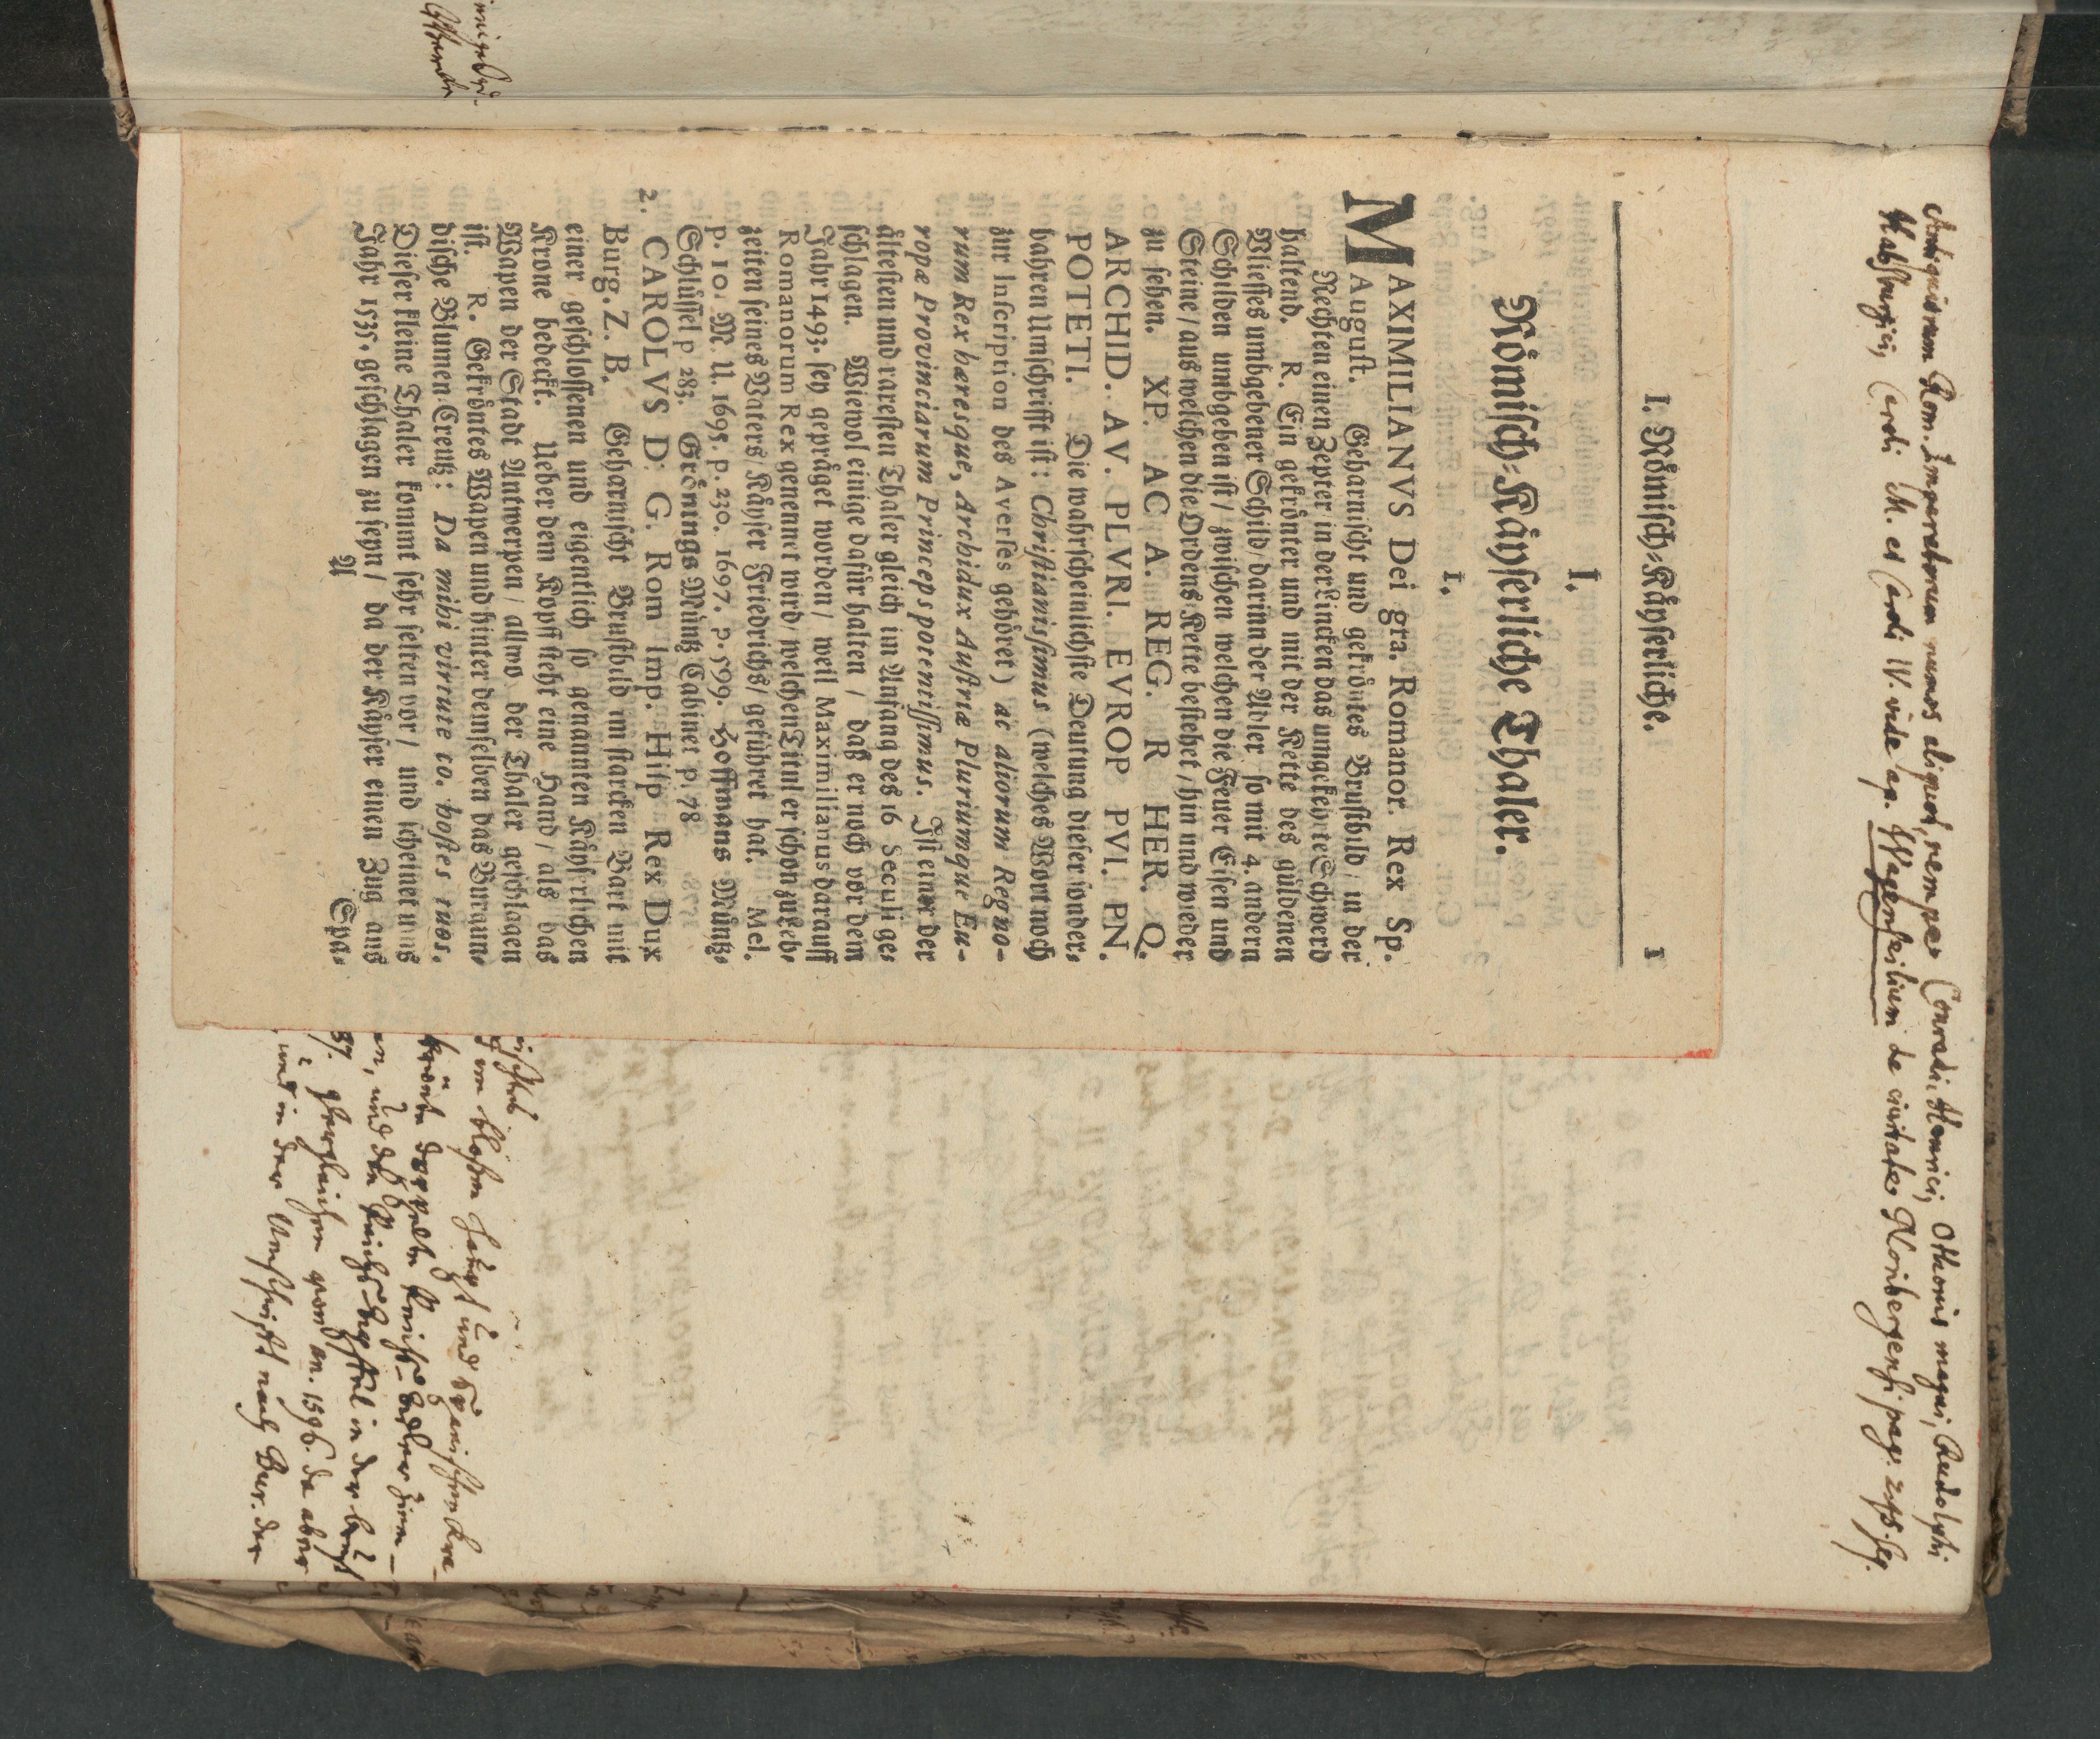 Antiquiorum Rom. Imperatorum numos aliquot, nempe Conradi, Henrici, Ottonis magni, Rudolphi
Habsburgici, Caroli M. et Caroli IV. vide ap. Wagenseilium de civitate Noribergensi pag.
I. Römisch-Käyserliche. 1
I.
Römisch-Käyserliche Thaler.
1.
MAXIMILIANVS Dei gra. Romanor. Rex Sp.
August. Geharnischt und gekröntes Brustbild / in der
Rechten einen Zepter in der Lincken das umgekehrte Schwerd
haltend. R. Ein gekrönter und mit der Kette des güldenen
Vliesses umbgebener Schild / darinn der Adler so mit 4. andern
Schilden umbgeben ist / zwischen welchen die Feuer Eisen und
Steine / aus welchen die Ordens Kette bestehet / hin und wieder
zu sehen. XP. AC A. REG. R HER. Q.
ARCHID. AV. PLVRI. EVROP PVI. PN.
POTETI. Die wahrscheinlichste Deutung dieser sonder-
bahren Umschrifft ist: Christianissimus (welches Wort noch
zur Inscription des Averses gehöret) ac aliorum Regno-
rum Rex hæresque, Archidux Austriæ Pluriumque Eu-
ropæ Provinciarum Princeps potentissimus. Ist einer der
ältesten und raresten Thaler gleich im Anfang des 16 Seculi ge-
schlagen. Wiewol einige dafür halten / daß er noch vor dem
Jahr 1493. sey gepräget worden / weil Maximilianus darauff
Romanorum Rex genennet wird / welchen Titul er schon zu Leb-
zeiten seines Vaters / Käyser Friedrichs / geführet hat. Mel.
p. 10. M. U. 1695. p. 230. 1697. p. 599. Hoffmans Müntz-
Schlüssel p 283. Grönings Müntz Cabinet p. 78
2. CAROLVS D: G. Rom Imp. Hisp Rex Dux
Burg. Z. B. Geharnischt Brustbild im starcken Bart mit
einer geschlossenen und eigentlich so genannten Käyserlichen
Krone bedeckt. Ueber dem Kopff steht eine Hand / als das
Wapen der Stadt Antwerpen / allwo der Thaler geschlagen
ist. R. Gekröntes Wapen und hinter demselben das Burgun-
dische Blumen Creutz: Da mihi virtute co. hostes tuos.
Dieser kleine Thaler kommt sehr selten vor / und scheinet uns
Jahr 1535. geschlagen zu seyn / da der Käyser einen Zug aus
A Spa-
bloßen Haupt und Spanischen
doppelte Reichs-Adler
und den Reichs-Apffel in der
37. gleichen von an. 1596. da aber
und in der Umschrifft nach Bur. der